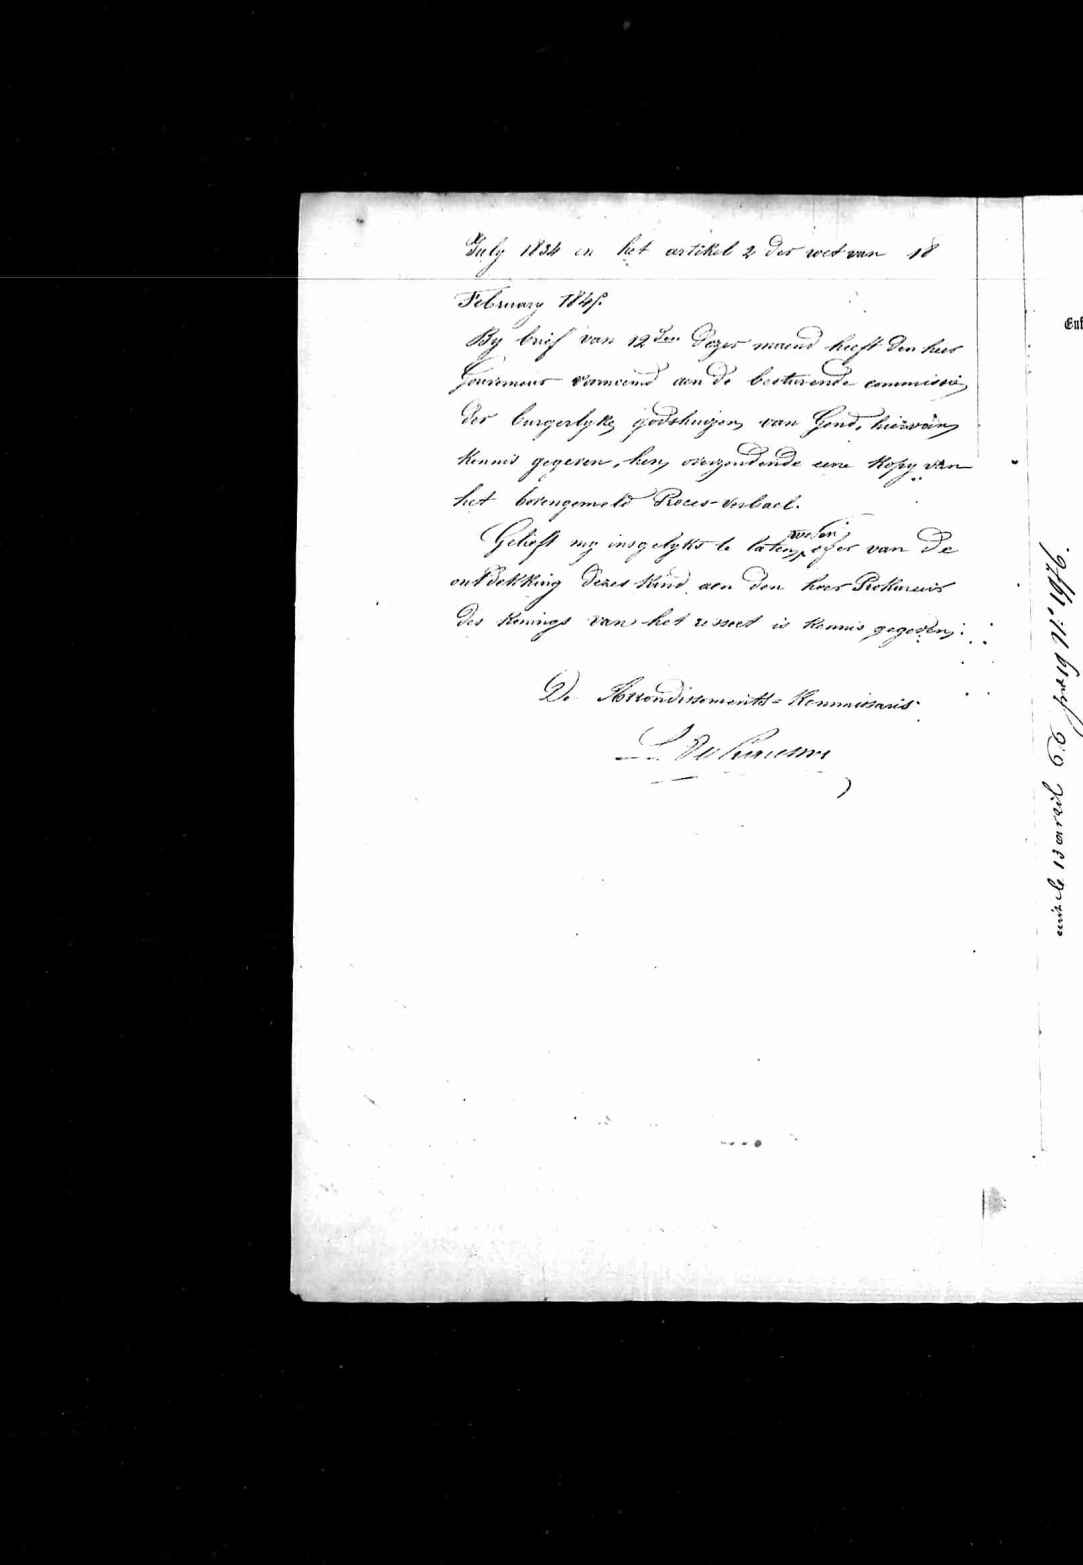 July 1834 en het artikel 2 der wet van 18
February 1845.
By brief van 12den dezer maend heeft den heer
Gouverneur voornoemd aen de besturende commissie
der burgerlyke godshuizen van Gend, hiervan
kennis gegeven, hen overzendende eene kopy van
het bovengemeld Proces-verbael.
Gelieft my insgelyks te laten weten, of er van de
ontdekking dezes kind aen den heer Prokureur
des konings van het ressort is kennis gegeven.
De Arrondissements-Kommissaris
13 avril 66 N° 1976.